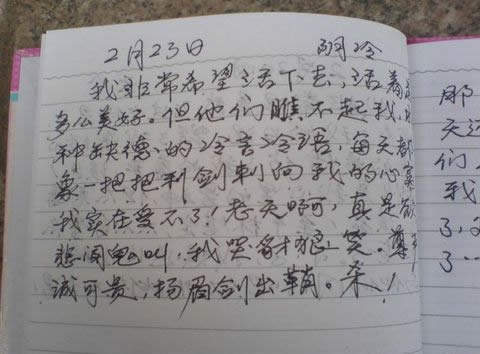 2月23日 阴冷
我非常希望活下去，活着
多么美好。但他们瞧不起我，
种缺德的冷言冷语，每天都
象一把把利剑刺向我的心窝
我实在受不了！老天啊，真是欲
悲闻鬼叫，我哭豺狼笑。尊
诚可贵，扬眉剑出鞘。杀！
那
天
们
我
了，
了…